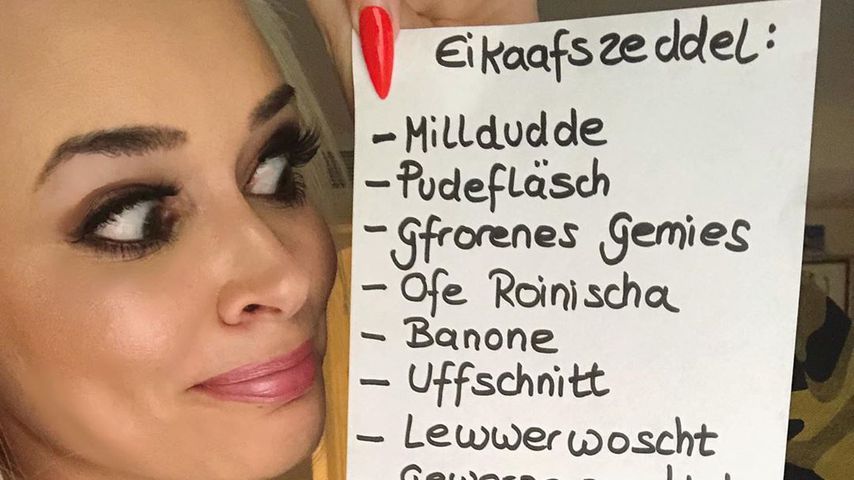 Eikaafszeddel:
- Milldudde
- Pudefläsch
- Gfrorenes Gemies
- Ofe Roinischa
- Banone
- Uffschnitt
- Lewwerwoscht